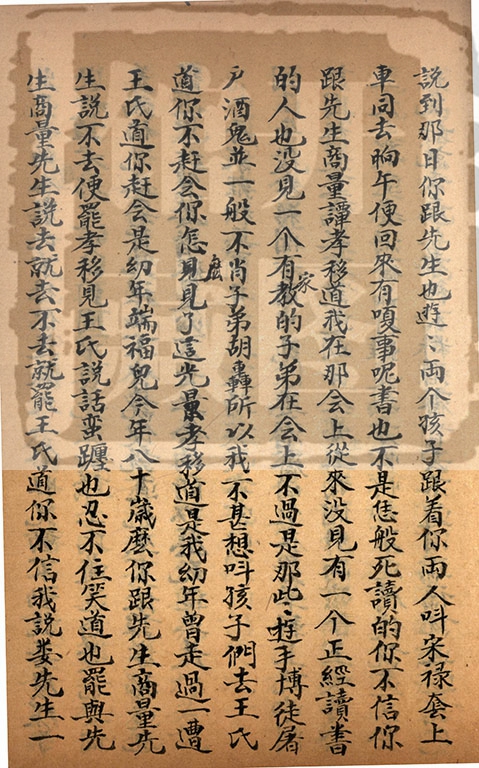 說到那日你跟先生也遊〻兩个孩子跟着你両人呌宋禄套上
車同去晌午便回來有嗄事呢書也不是恁般死讀的你不信你
跟先生商量譚孝移道我在那会上從來没見有一个正經讀書
的人也没見一个有家教的子弟在会上不過是那些〻遊手博徒屠
户酒鬼並一般不肖子弟胡轟所以我不甚想呌孩子們去王氏
道你不赶会你怎麽見見了這光景孝移道是我幼年曾走過一遭
王氏道你赶会是幼年端福兒今年八十歳麽你跟先生商量先
生説不去便罷孝移見王氏説話蛮纒也忍不住笑道也罷與先
生商量先生説去就去不去就罷王氏道你不信我説婁先生一